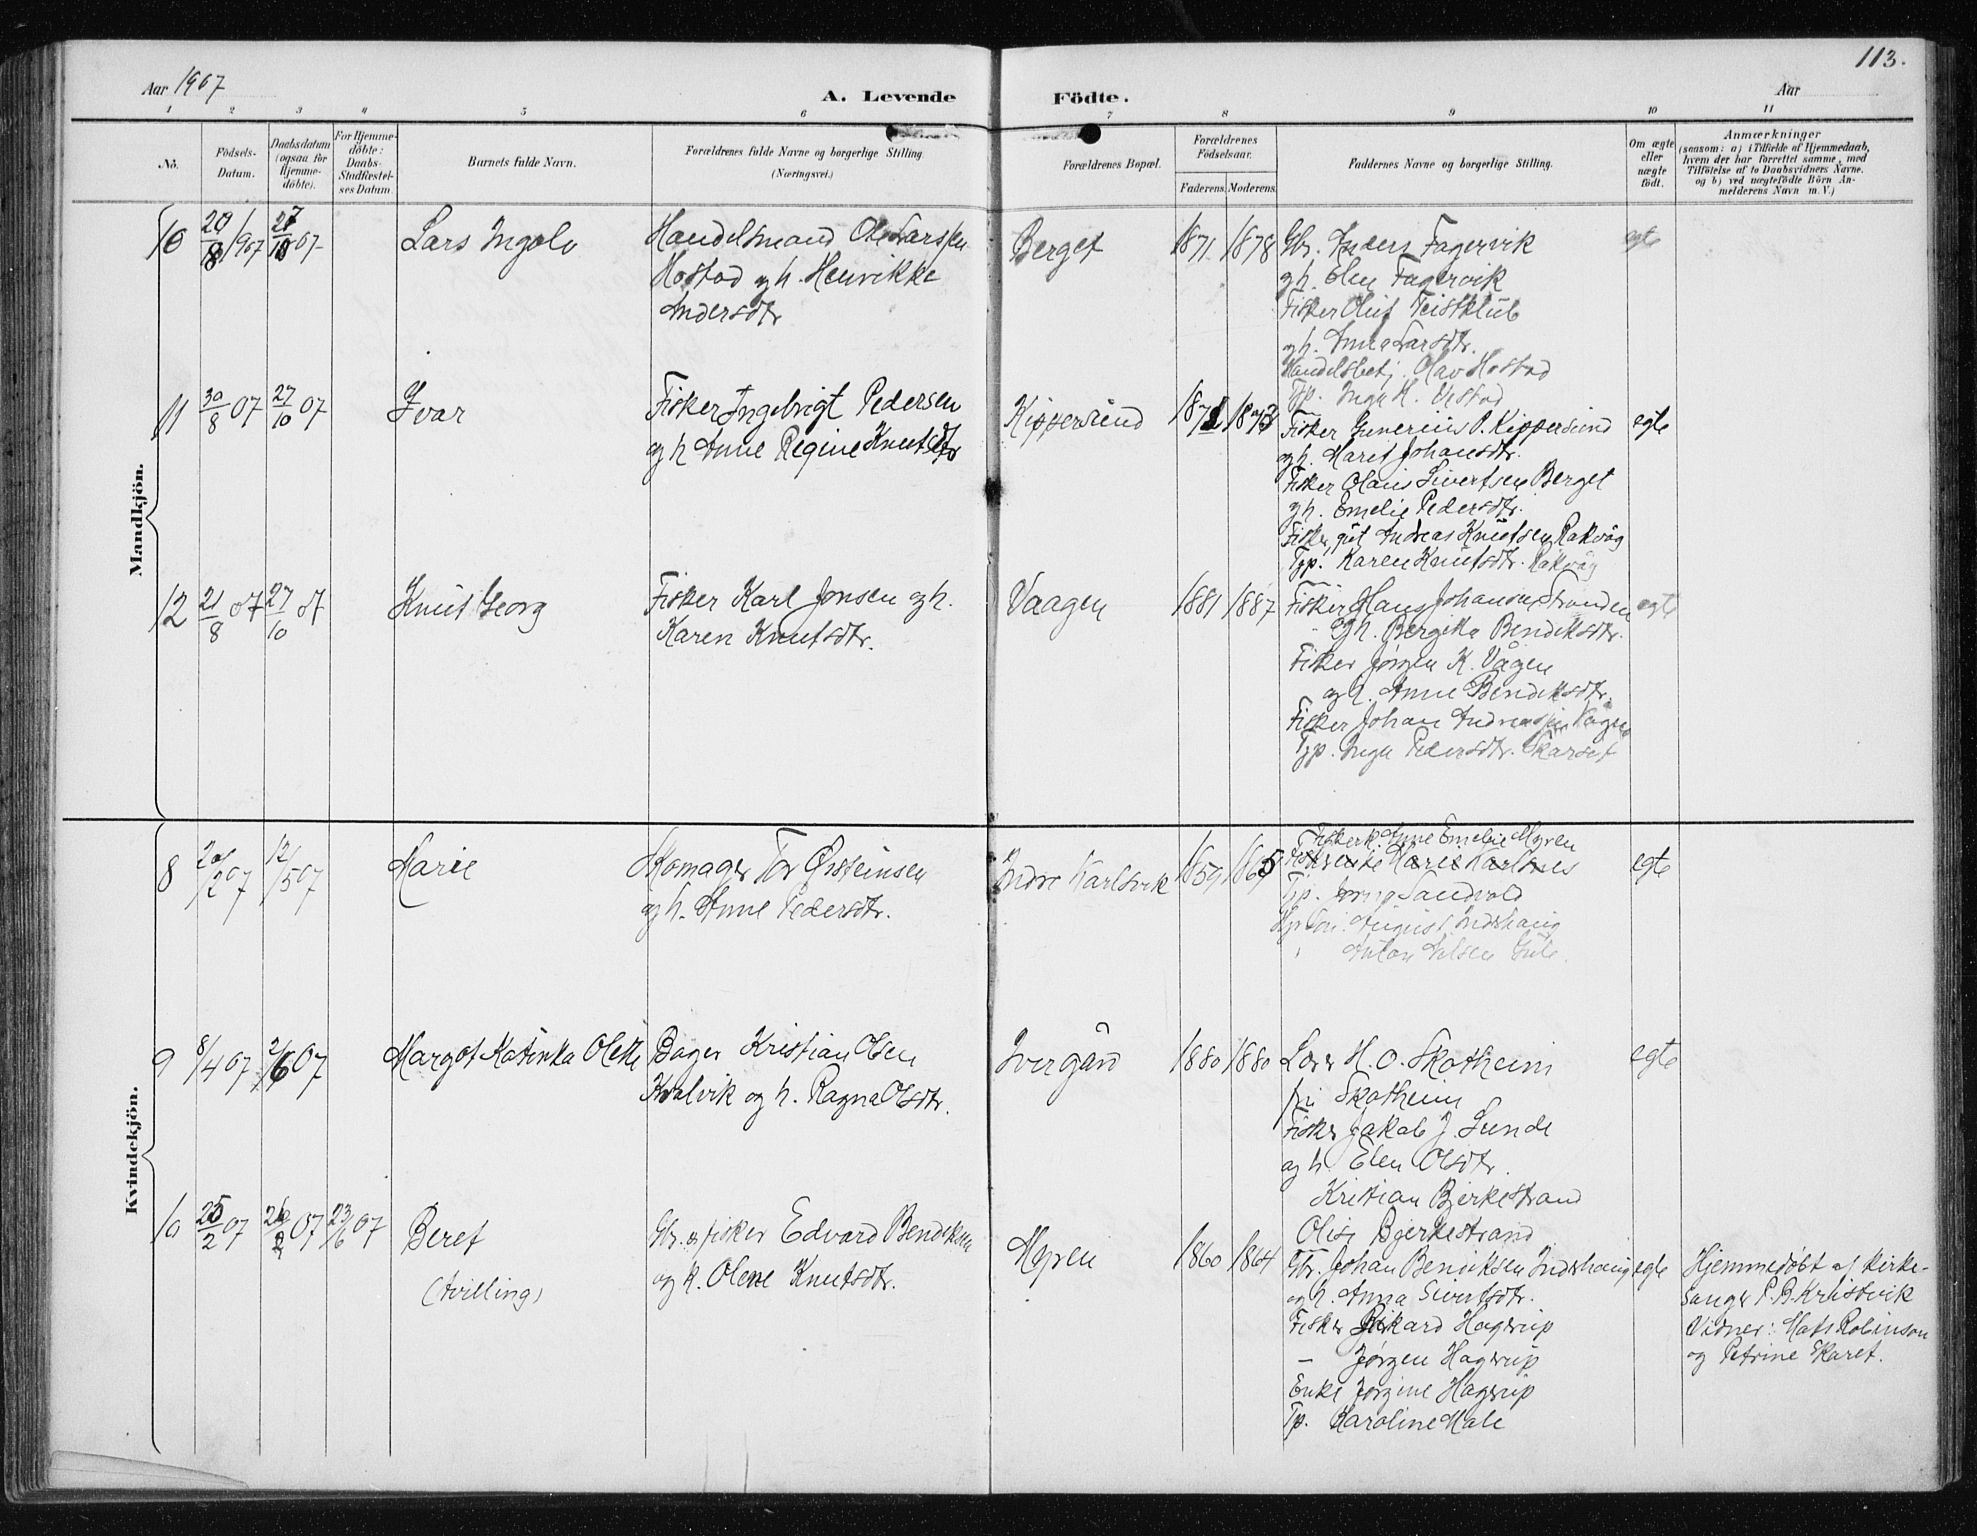 113.
Aar 1907
A. Levende Födte.
Aar
1 2 3 4 5 6 7 8 9 10 11
No.
Födsels-Datum.
Daabsdatum (ogsaa for Hjemme-döbte).
For Hjemme-döbte: Daabs-Stadfæstel-ses Datum.
Barnets fulde Navn.
Forældrenes fulde Navne og borgerlige Stilling (Næringsvei.)
Forældrenes Bopæl.
Forældrenes Födselsaar.
Faderens. Moderens.
Faddernes Navne og borgerlige Stilling.
Om ægte eller uægte födt.
Anmærkninger
(saasom: a) i Tilfælde af Hjemmedaab,
hvem der har forrettet samme, med
Tilföielse af to Daabsvidners Navne.
og b) ved uægtefödte Börn An-
melderens Navn m. V.)
Mandkjön.
10 20/8 1907 27/10 07 Lars Ingolv
Handelsmand Ole Larssen
Mostad og h. Henrikke
Andersdtr
Berget 1871 1878
Gbr. Anders Fagervik
og h. Elen Fagervik
Fisker Oluf Teistklub
og h. Anna Larsdtr.
Handelsbetj. Olav Mostad
Tjp. Inga H. Vestad
egte
11 30/8 07 27/10 07 Ivar
Fisker Ingebrigt Pedersen
og h Anne Regine Knutsdtr
Kippersund 1871 1873
Fisker Gunerius P. Kippersund
og h. Marit Johansdtr.
Fisker Olaus Sivertsen Berget
og h. Emelie Pedersdtr.
Fisker gut Andreas Knutsen Rakvåg
Tjp. Karen Knutsdtr. Rakvåg
egte
12 21/8 07 27/10 07 Knut Georg
Fisker Karl Jonsen og h.
Karen Knutsdtr.
Vaagen 1881 1887
Fisker Hans Johansen Stranden
og h. Bergitta Bendiksdtr.
Fisker Jørgen K. Vågen
og h. Anne Bendiksdtr.
Fisker Johan Andreassen Vågen
Tjp. Inga Pedersdtr. Skarset
egte
Kvindekjön.
8 20/2 07 12/5 07 Marie
Skomager Tor Øisteinsen
og h. Anne Pedersdtr.
Indre Karlsvik 1859 1865
Fiskerk. Anne Emelie Myren
Marie Karlsnes
Tjp. Sandvold
August Indrhaug
Anton Nilsen Gule
egte
9 8/4 07 2/6 07 Margot Katinka Olette
Bager Kristian Olsen
Kvalvik og h. Ragna Olsdtr.
Ivergård 1880 1880
Lærer H. O. Skotheim
fru Skotheim
Fisker Jakob J. Sunde
og h. Elen Olsdtr.
Kristian Bjerkestrand
Olise Bjerkestrand
egte
10 25/2 07 26/2 07 23/6 07 Beret
(tvilling)
Gbr. & fisker Edvard Bendiksen
og h. Olene Knutsdtr.
Myren 1860 1864
Gbr. Johan Bendiksen Indrhaug
og h. Anna Sivertsdtr.
Fisker Rikard Hagerup
— Jørgen Hagerup
Enke Jørgine Hagerup
Tp. Karoline Male
egte
Hjemmedøbt af kirke-
sanger P. B. Kristvik
Vidner: Mats Robinson
og Petrine Skaret.